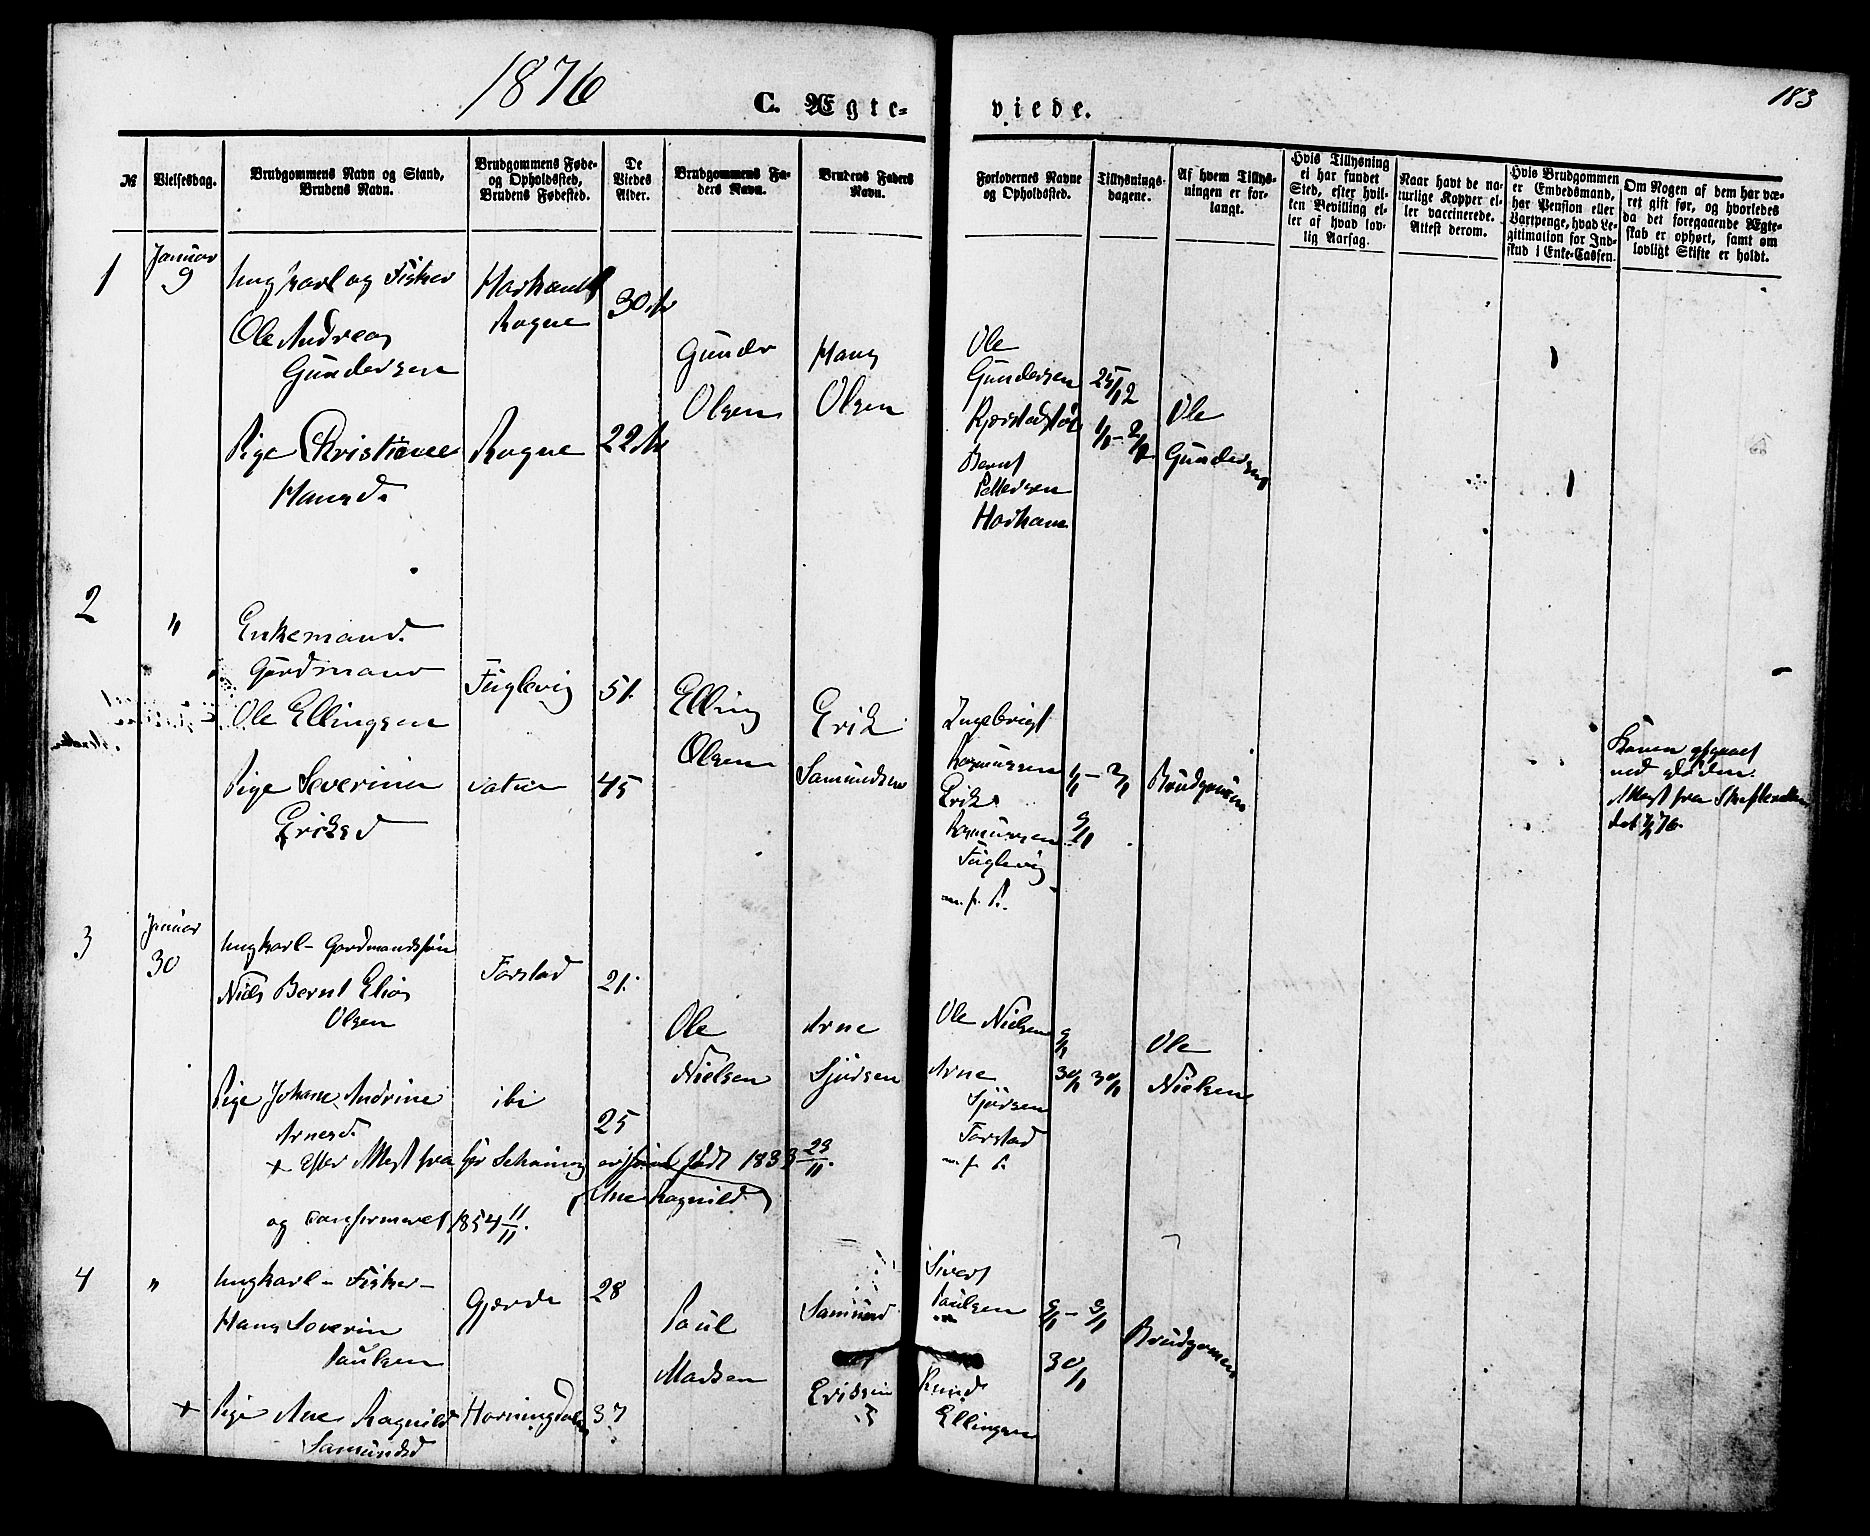 1876
C. Ægte-
viede.
183
№
Vielsesdag.
Brudgommens Navn og Stand,
Brudens Navn.
Brudgommens Føde-
og Opholdssted,
Brudens Fødested.
De
Viedes
Alder.
Brudgommens Fa-
ders Navn.
Brudens Faders
Navn.
Forlovernes Navne
og Opholdssted.
Tillysnings-
dagene.
Af hvem Tillys-
ningen er for-
langt.
Hvis Tillysning
ei har fundet
Sted, efter hvil-
ken Bevilling el-
ler af hvad lov-
lig Aarsag.
Naar havt de na-
turlige Kopper el-
ler vaccinerede.
Attest derom.
Hvis Brudgommen
er Embedsmand,
har Pension eller
Vartpenge, hvad Le-
gitimation for Ind-
skud i Enke-Cassen.
Om Nogen af dem har væ-
ret gift før, og hvorledes
da det foregaaende Ægte-
skab er ophørt, samt om
lovligt Skifte er holdt.
1
Januar
9
Ungkarl og Fisker
Ole Andreas
Gundersen
Pige Christiane
Hansd.
Rogne
Rogne
30 Ar
22 Ar
Gunder
Olsen
Hans
Olsen
Ole
Gundersen
Bernt
Pettersen
25/12
1/1 - 2/1
Ole
Gundersen
2
"
Enkemand.
Gårdmand
Ole Ellingsen
Pige Severine
Eriksd
Fuglevig
51.
45
Elling
Olsen
Erik
Samundsen
Ingebrigt
Rasmussen
Erik
Rasmussen
Fuglevig
1/1 - 2/1
9/1
Brudgommen
Konen
ved døden.
Attest fra Skifteretten
3
Januar
30
Ungkarl - Gardmandssøn
Niels Bernt Elias
Olsen
Pige Johane Andrine
Arnesd.
Farstad
ibi
21.
25
Ole
Nielsen
Arne
Sjursen
Ole Nielsen
Arne
Sjursen
Farstad
9/1
30/1 30/1
Ole
Nielsen
+ Efter Attest fra
født 1833 23/11.
Ane Ragnild
og konfirmeret 1854 11/11.
4
"
Ungkarl - Fisker -
Hans Severin
Paulsen
+ Pige Ane Ragnild
Samundsd
Gjerde
Horningdalen
28
37
Paul
Madsen
Samund
Sivert
Paulsen
Knud
Ellingsen
9/1 - 9/1
30/1
Brudgommen